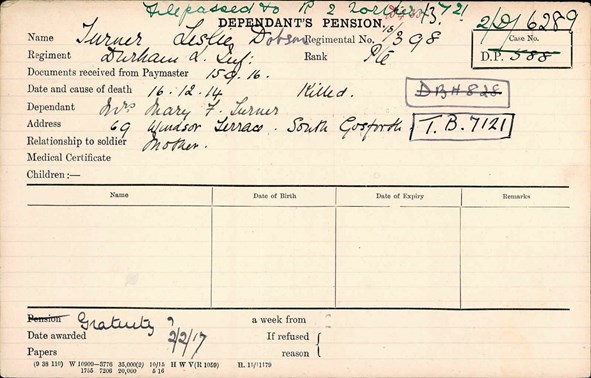 File passed to R 2 21
DEPENDANT'S PENSION. 2/D/6289
Name Turner Leslie Dobson Regimental No. 18/398 Case No.
Regiment Durham L. Inf: Rank Pte D.P. 588
Documents received from Paymaster 15.9.16.
Date and cause of death 16.12.14 Killed. DBH 828
Dependant Mrs Mary F. Turner
Address 69 Windsor Terrace. South Gosforth T.B.7121
Relationship to soldier Mother.
Medical Certificate
Children:—
Name Date of Birth Date of Expiry Remarks
Pension Gratuity ? a week from
Date awarded 2/2/17 If refused
Papers reason
(9 38 110) W 10909—3776 35,000(2) 10/15 H W V(R 1059)
1755 7206 20,000 5 16